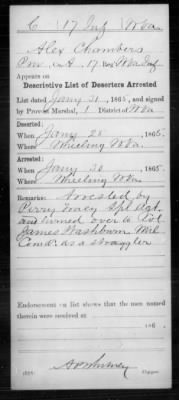 C | 17 Inf | W.Va.
Alex Chambers
Co. A, 17 Reg't W.Va. Inf.
Appears on
Descriptive List of Deserters Arrested
List dated Jany 31, 1865, and signed
by Provost Marshal, 1 District W.Va
Deserted:
When Jany 28, 1865.
Where Wheeling W.Va.
Arrested:
When Jany 30, 1865.
Where Wheeling W.Va.
Remarks: Arrested by
Perry Spl Agt.
and turned over to Capt
James Washburn Mil
Com'd'r as a straggler
Endorsement on list shows that the men named
therein were received at
, 186 .
Copyist.